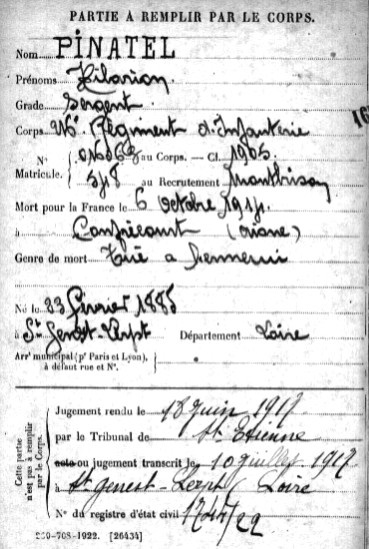 PARTIE À REMPLIR PAR LE CORPS.
Nom PINATEL
Prénoms Hilarion
Grade Sergent
Corps Régiment d'Infanterie
16
N° au Corps. — Cl. 1905
Matricule. 548 au Recrutement Montbrison
Mort pour la France le 6 Octobre 1914
à (Oise)
Genre de mort Tué à l'ennemi
Né le 23 février 1885
à St Genest-Lerpt Département Loire
Arr' municipal (p' Paris et Lyon),
à défaut rue et N°.
Cette partie
n'est pas à remplir
par le Corps.
Jugement rendu le 18 juin 1917
par le Tribunal de St Etienne
acte ou jugement transcrit le 10 juillet 1917
à St genest-Lerpt Loire
N° du registre d'état civil 1744/22
-708-1922. [26434]